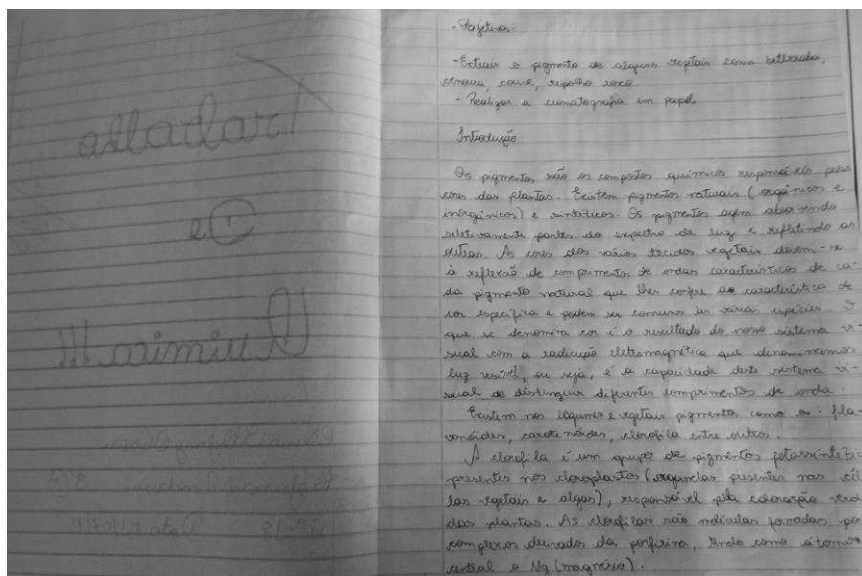 Trabalho
de
Química !!!
- Objetivos:
- Extrair o pigmento de alguns vegetais como beterraba,
cenoura, couve, repolho roxo.
- Realizar a cromatografia em papel
Introdução
Os pigmentos são os compostos químicos responsáveis pelas
cores das plantas. Existem pigmentos naturais (orgânicos e
inorgânicos) e sintéticos. Os pigmentos agem absorvendo
seletivamente partes do espectro da luz e refletindo as
outras. As cores dos vários tecidos vegetais devem-se
à reflexão de comprimentos de ondas característicos de ca-
da pigmento natural que lhes confere as característica de
cor específica e podem ser comuns às várias espécies. O
que se denomina cor é o resultado do nosso sistema vi-
sual com a radiação eletromagnética que denominamos
luz visível, ou seja, é a capacidade deste sistema vi-
sual de distinguir diferentes comprimentos de onda.
Existem nos legumes e vegetais pigmentos como os: fla-
vonóides, carotenóides, clorofila entre outros.
A clorofila é um grupo de pigmentos fotossintétic
presentes nos cloroplastos (organelas presentes nas cél
las vegetais e algas), responsável pela coloração verd
das plantas. As clorofilas são moléculas formadas por
complexos derivados da porfirina, tendo como átomo
central o Mg (magnésio).